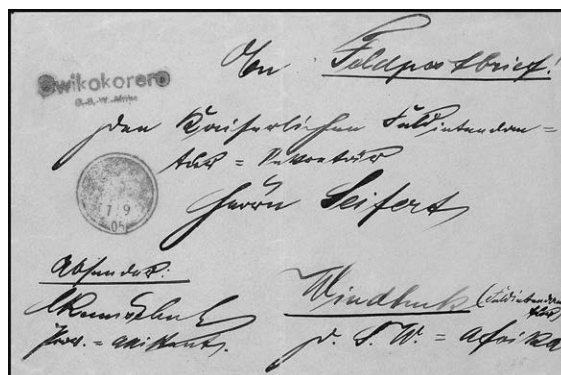 Owikokorero
D.-S.-W.-Afrika
An Feldpostbrief!
den Kaiserlichen Feldintendan=
tur = Sekretär
Herrn Seifert
17/9
05
Absender:
Prov. = Assistent.
Windhuk (Feldintendan
tur)
D. S. W. = Afrika